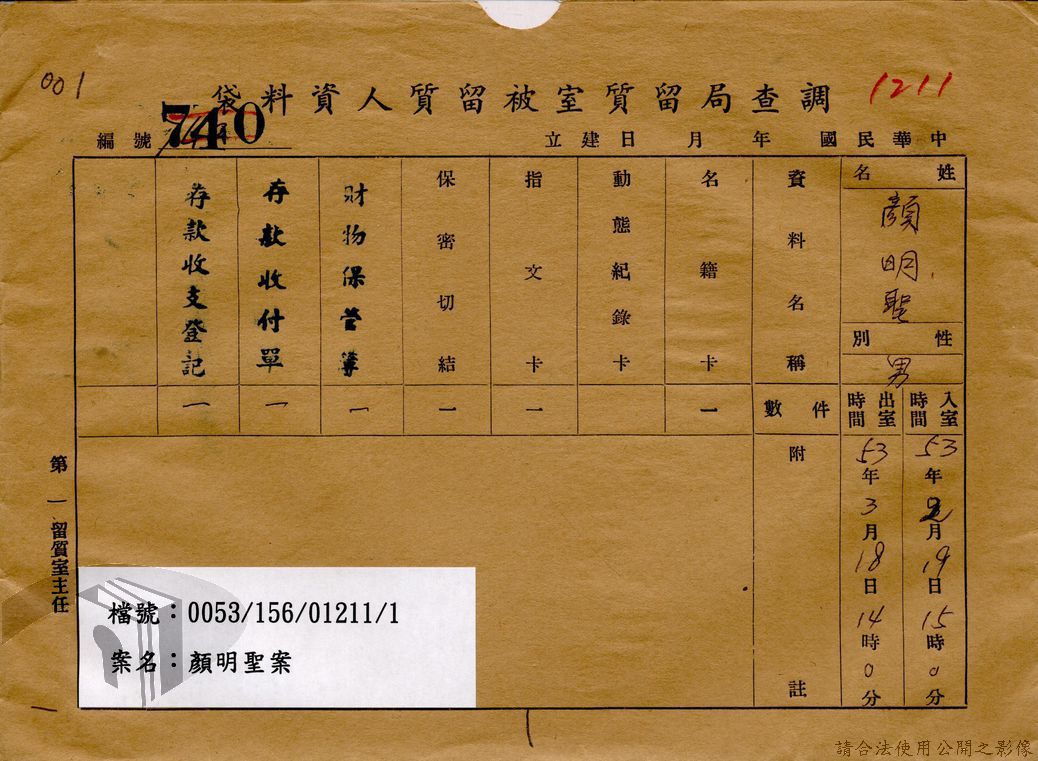 001
調查局留質室被留質人資料袋
1211
編號 740
中華民國 年 月 日建立
姓名
顏明聖
性別
男
入室時間
53年2月19日15時0分
出室時間
53年3月18日14時0分
資料名稱
件數
附註
名籍卡
一
動態紀錄卡
指文卡
一
保密切結
一
財物保管簿
一
存款收付單
一
存款收支登記
一
第一留質室主任
檔號：0053/156/01211/1
案名：顏明聖案
請合法使用公開之影像